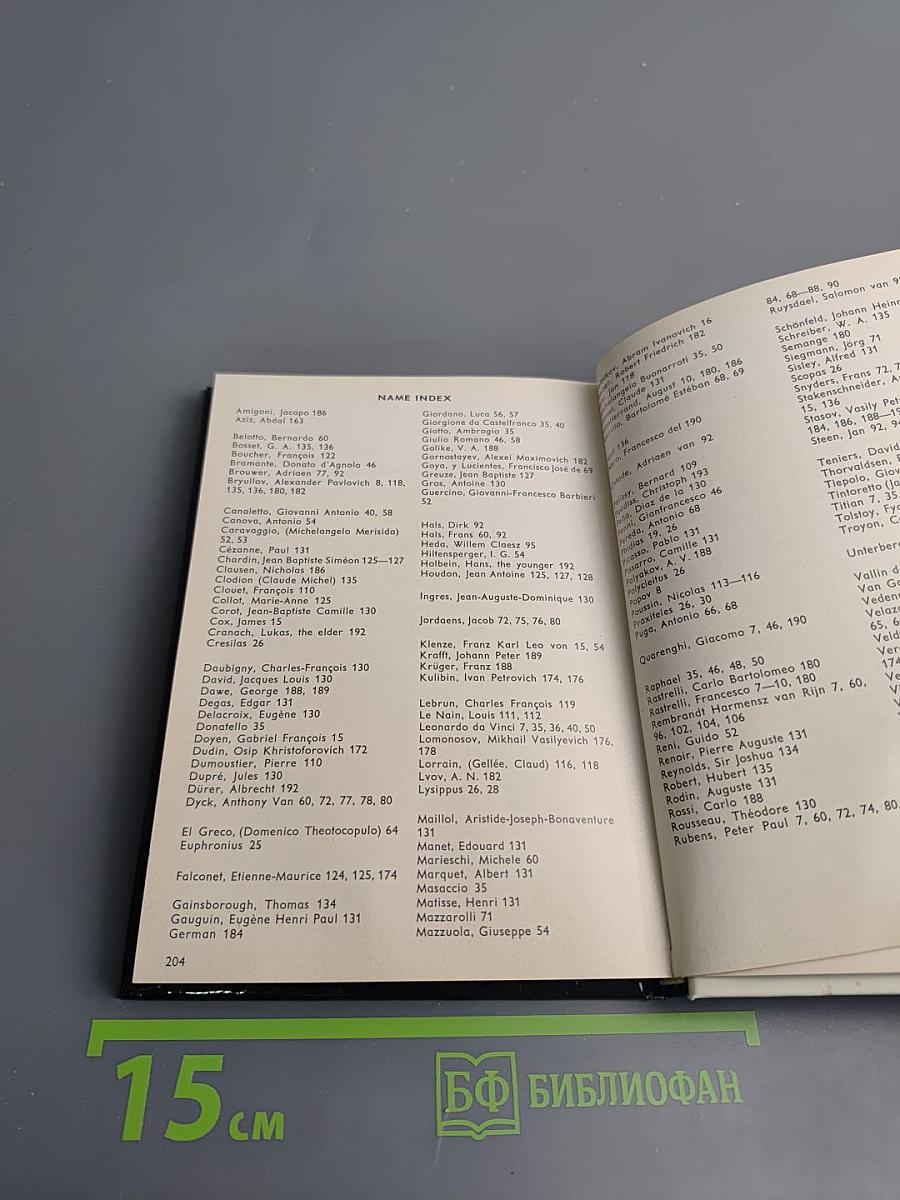 NAME INDEX
Amigoni, Jacopo 186
Aziz, Abdal 163
Belotto, Bernardo 60
Bosset, G. A. 135, 136
Boucher, François 122
Bramante, Donato d'Agnolo 46
Brouwer, Adriaen 77, 92
Bryullov, Alexander Pavlovich 8, 118,
135, 136, 180, 182
Canaletto, Giovanni Antonio 40, 58
Canova, Antonio 54
Caravaggio, (Michelangelo Merisida)
52, 53
Cézanne, Paul 131
Chardin, Jean Baptiste Siméon 125—127
Clausen, Nicholas 186
Clodion (Claude Michel) 135
Clouet, François 110
Collot, Marie-Anne 125
Corot, Jean-Baptiste Camille 130
Cox, James 15
Cranach, Lukas, the elder 192
Cresilas 26
Daubigny, Charles-François 130
David, Jacques Louis 130
Dawe, George 188, 189
Degas, Edgar 131
Delacroix, Eugène 130
Donatello 35
Doyen, Gabriel François 15
Dudin, Osip Khristoforovich 172
Dumoustier, Pierre 110
Dupré, Jules 130
Dürer, Albrecht 192
Dyck, Anthony Van 60, 72, 77, 78, 80
El Greco, (Domenico Theotocopulo) 64
Euphronius 25
Falconet, Etienne-Maurice 124, 125, 174
Gainsborough, Thomas 134
Gauguin, Eugène Henri Paul 131
German 184
204
Giordano, Luca 56, 57
Giorgione da Castelfranco 35, 40
Giotto, Ambrogio 35
Giulio Romano 46, 58
Golike, V. A. 188
Gornostayev, Alexei Maximovich 182
Goya, y Lucientes, Francisco José de 69
Greuze, Jean Baptiste 127
Gros, Antoine 130
Guercino, Giovanni-Francesco Barbieri
52
Hals, Dirk 92
Hals, Frans 60, 92
Heda, Willem Claesz 95
Hiltensperger, I. G. 54
Holbein, Hans, the younger 192
Houdon, Jean Antoine 125, 127, 128
Ingres, Jean-Auguste-Dominique 130
Jordaens, Jacob 72, 75, 76, 80
Klenze, Franz Karl Leo von 15, 54
Krafft, Johann Peter 189
Krüger, Franz 188
Kulibin, Ivan Petrovich 174, 176
Lebrun, Charles François 119
Le Nain, Louis 111, 112
Leonardo da Vinci 7, 35, 36, 40, 50
Lomonosov, Mikhail Vasilyevich 176,
178
Lorrain, (Gellée, Claud) 116, 118
Lvov, A. N. 182
Lysippus 26, 28
Maillol, Aristide-Joseph-Bonaventure
131
Manet, Edouard 131
Marieschi, Michele 60
Marquet, Albert 131
Masaccio 35
Matisse, Henri 131
Mazzarolli 71
Mazzuola, Giuseppe 54
Abram Ivanovich 16
Robert Friedrich 182
Jan 118
Buonarroti 35, 50
Claude 131
August 10, 180, 186
Bartolomé Estéban 68, 69
136
Francesco del 190
Adriaen van 92
Bernard 109
Christoph 193
Diaz de la 130
Gianfrancesco 46
Pereda, Antonio 68
Phidias 19, 26
Picasso, Pablo 131
Pissarro, Camille 131
Polyakov, A. V. 188
Polycleitus 26
Popov 8
Poussin, Nicolas 113—116
Praxiteles 26, 30
Puga, Antonio 66, 68
Quarenghi, Giacomo 7, 46, 190
Raphael 35, 46, 48, 50
Rastrelli, Carlo Bartolomeo 180
Rastrelli, Francesco 7—10, 180
Rembrandt Harmensz van Rijn 7, 60,
96, 102, 104, 106
Reni, Guido 52
Renoir, Pierre Auguste 131
Reynolds, Sir Joshua 134
Robert, Hubert 135
Rodin, Auguste 131
Rossi, Carlo 188
Rousseau, Théodore 130
Rubens, Peter Paul 7, 60, 72, 74, 80,
84, 68—88, 90
Ruysdael, Salomon van
Schönfeld, Johann
Schreiber, W. A. 135
Semange 180
Siegmann, Jörg 71
Sisley, Alfred 131
Scopas 26
Snyders, Frans 72,
Stakenschneider,
15, 136
Stasov, Vasily
184, 186,
Steen, Jan 92,
Teniers, David
Thorvaldsen,
Tiepolo,
Tintoretto
Titian 7, 35,
Tolstoy,
Troyon,
Vallin
Van
174
15 см
БФ БИБЛИОФАН